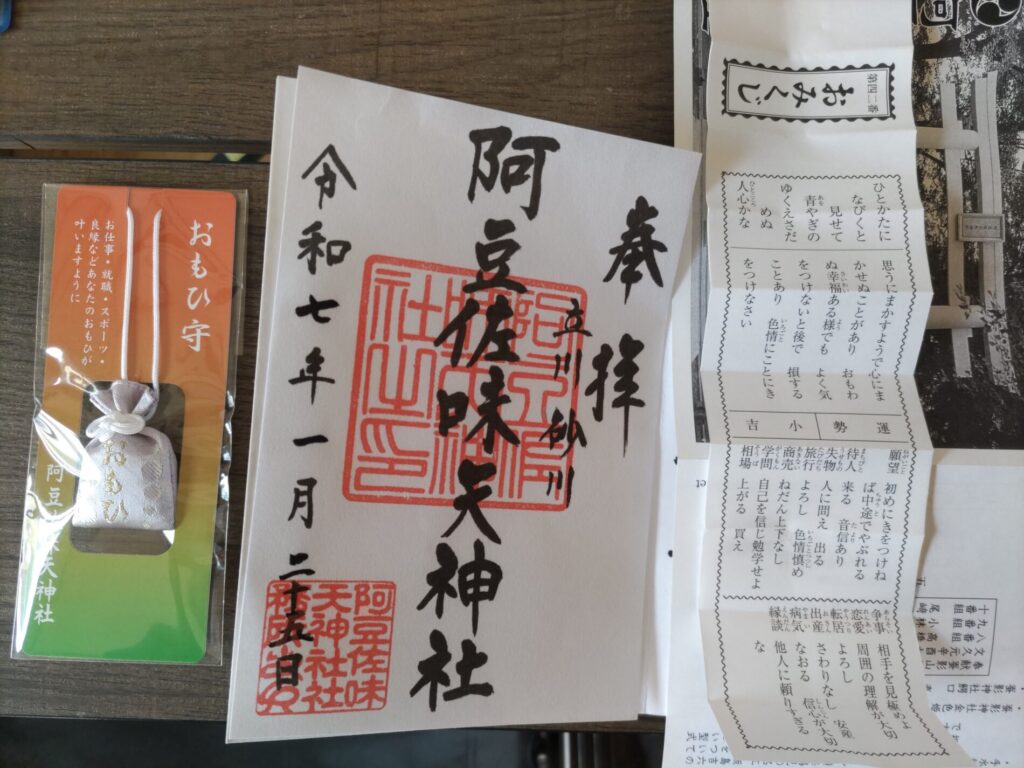 おもひ守
お仕事・就職・スポーツ・
良縁などあなたのおもひが
叶いますように
おもひ
阿豆
天神社
奉拝
立川砂川
阿豆佐味天神社
令和七年一月二十五日
阿豆佐味
天神社社
第四二番
おみくじ
ひとかたに
なびくと
見せて
青やぎの
ゆくえさだ
めぬ
人心かな
思うにまかすようで心にま
かせぬことがあり おもわ
ぬ幸福ある様でも よく気
をつけないと後で 損する
ことあり 色情にことにき
をつけなさい
運勢 小吉
願望 初めにきをつけね
ば中途でやぶれる
待人 来る 音信あり
失物 人に問え 出る
旅行 よろし 色情慎め
商売 ねだん上下なし
学問 自己を信じ勉学せよ
相場 上がる 買え
争事 相手を見極めよ
恋愛 周囲の理解が大切
転居 よろし
出産 さわりなし 安産
病気 なおる 信心が大切
縁談 他人に頼りすぎる
な
阿
文久元辛酉
八番組 高橋
九番組 小林
十番組 尾崎